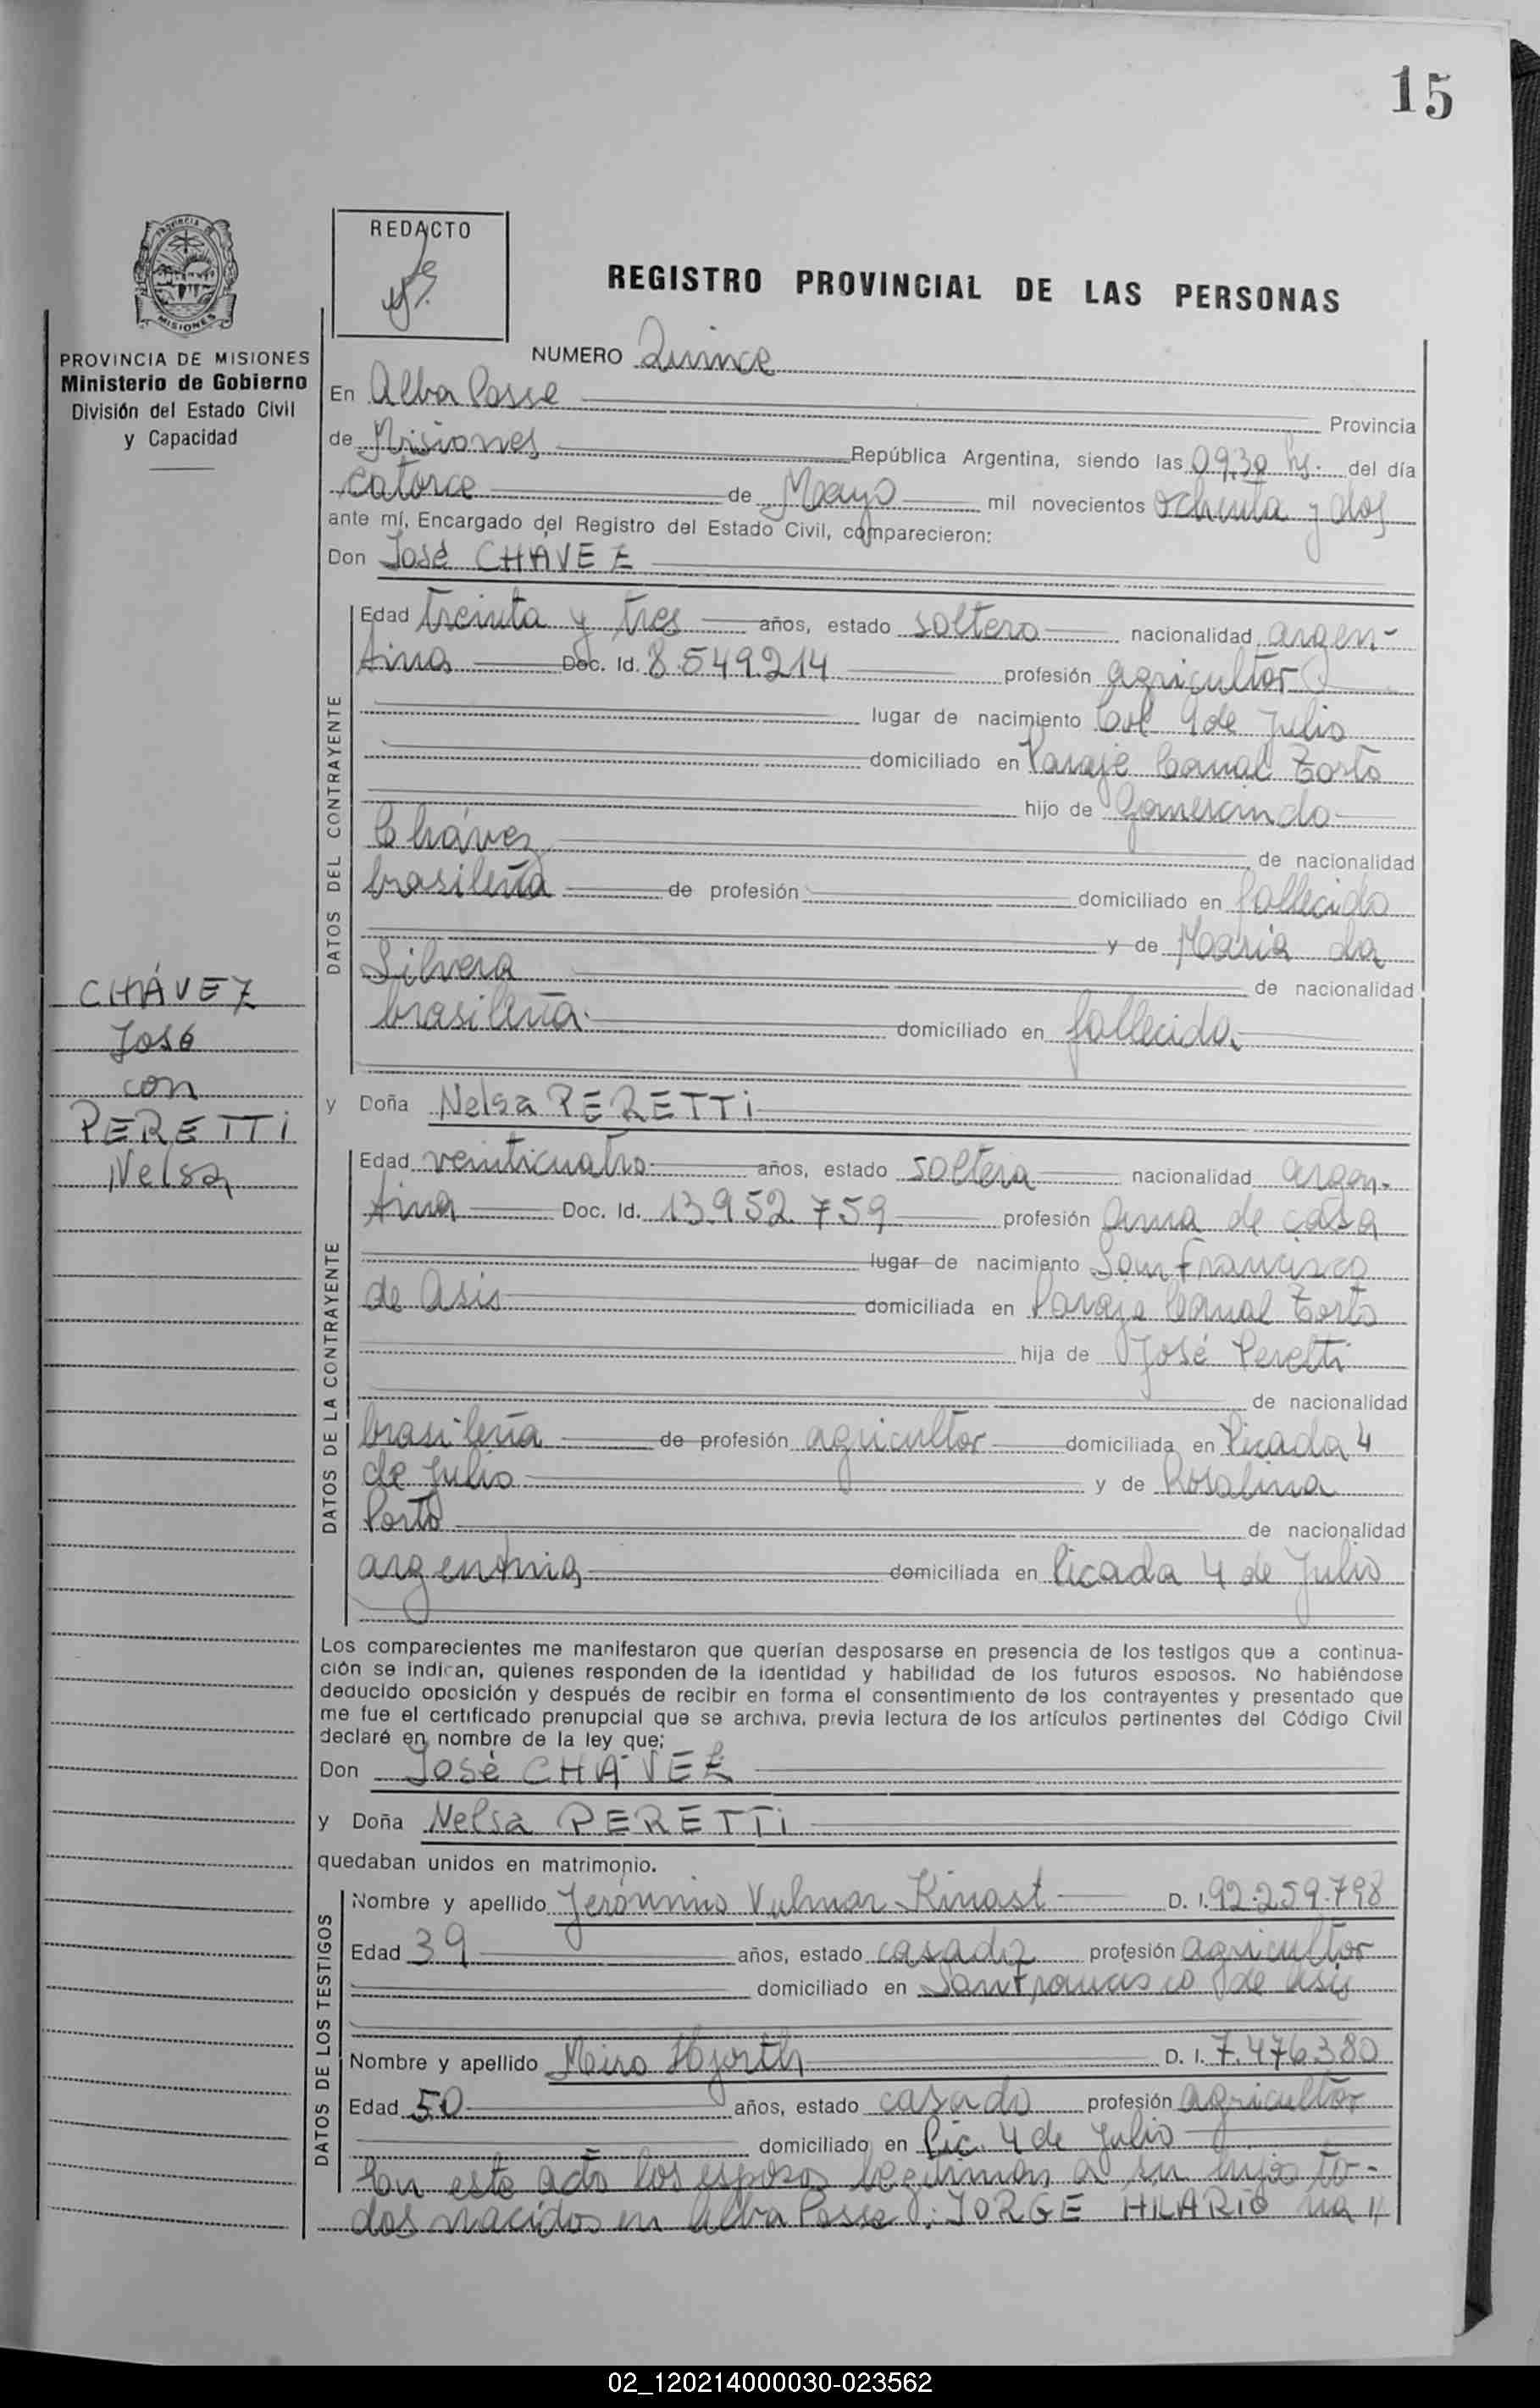 15
PROVINCIA DE
MISIONES
PROVINCIA DE MISIONES
Ministerio de Gobierno
División del Estado Civil
y Capacidad
REDACTO
REGISTRO PROVINCIAL DE LAS PERSONAS
NUMERO Quince
En Alba Posse Provincia
de Misiones República Argentina, siendo las 09,30 hs. del día
catorce de Mayo mil novecientos ochenta y dos
ante mí, Encargado del Registro del Estado Civil, comparecieron:
Don José CHÁVEZ
DATOS DEL CONTRAYENTE
Edad treinta y tres años, estado soltero nacionalidad argen-
tina Doc. Id. 8.549.214 profesión agricultor
lugar de nacimiento Col. 9 de Julio
domiciliado en Paraje Canal Torto
hijo de Gomercindo
Chávez de nacionalidad
brasileña de profesión domiciliado en fallecido
y de María da
Silvera de nacionalidad
brasileña domiciliado en fallecida
CHÁVEZ
José
con
PERETTI
Nelsa
y Doña Nelsa PERETTI
DATOS DE LA CONTRAYENTE
Edad veinticuatro años, estado soltera nacionalidad argen-
tina Doc. Id. 13.952.759 profesión ama de casa
lugar de nacimiento San Francisco
de Asis domiciliada en Paraje Canal Torto
hija de José Peretti
de nacionalidad
brasileña de profesión agricultor domiciliada en Picada 4
de Julio y de Rosalina
Porto de nacionalidad
argentina domiciliada en Picada 4 de Julio
Los comparecientes me manifestaron que querían desposarse en presencia de los testigos que a continua-
ción se indican, quienes responden de la identidad y habilidad de los futuros esposos. No habiéndose
deducido oposición y después de recibir en forma el consentimiento de los contrayentes y presentado que
me fue el certificado prenupcial que se archiva, previa lectura de los artículos pertinentes del Código Civil
declaré en nombre de la ley que;
Don José CHÁVEZ
y Doña Nelsa PERETTI
quedaban unidos en matrimonio.
DATOS DE LOS TESTIGOS
Nombre y apellido Jerónimo Vulmar Kinast D. I. 92.259.798
Edad 39 años, estado casado profesión agricultor
domiciliado en San Francisco de Asis
Nombre y apellido Meiro Hjorth D. I. 7.476.380
Edad 50 años, estado casado profesión agricultor
domiciliado en Pic. 4 de Julio
En este acto los esposos legitiman a su hijos to-
dos nacidos en Alba Posse: JORGE HILARIO na //
02_120214000030-023562